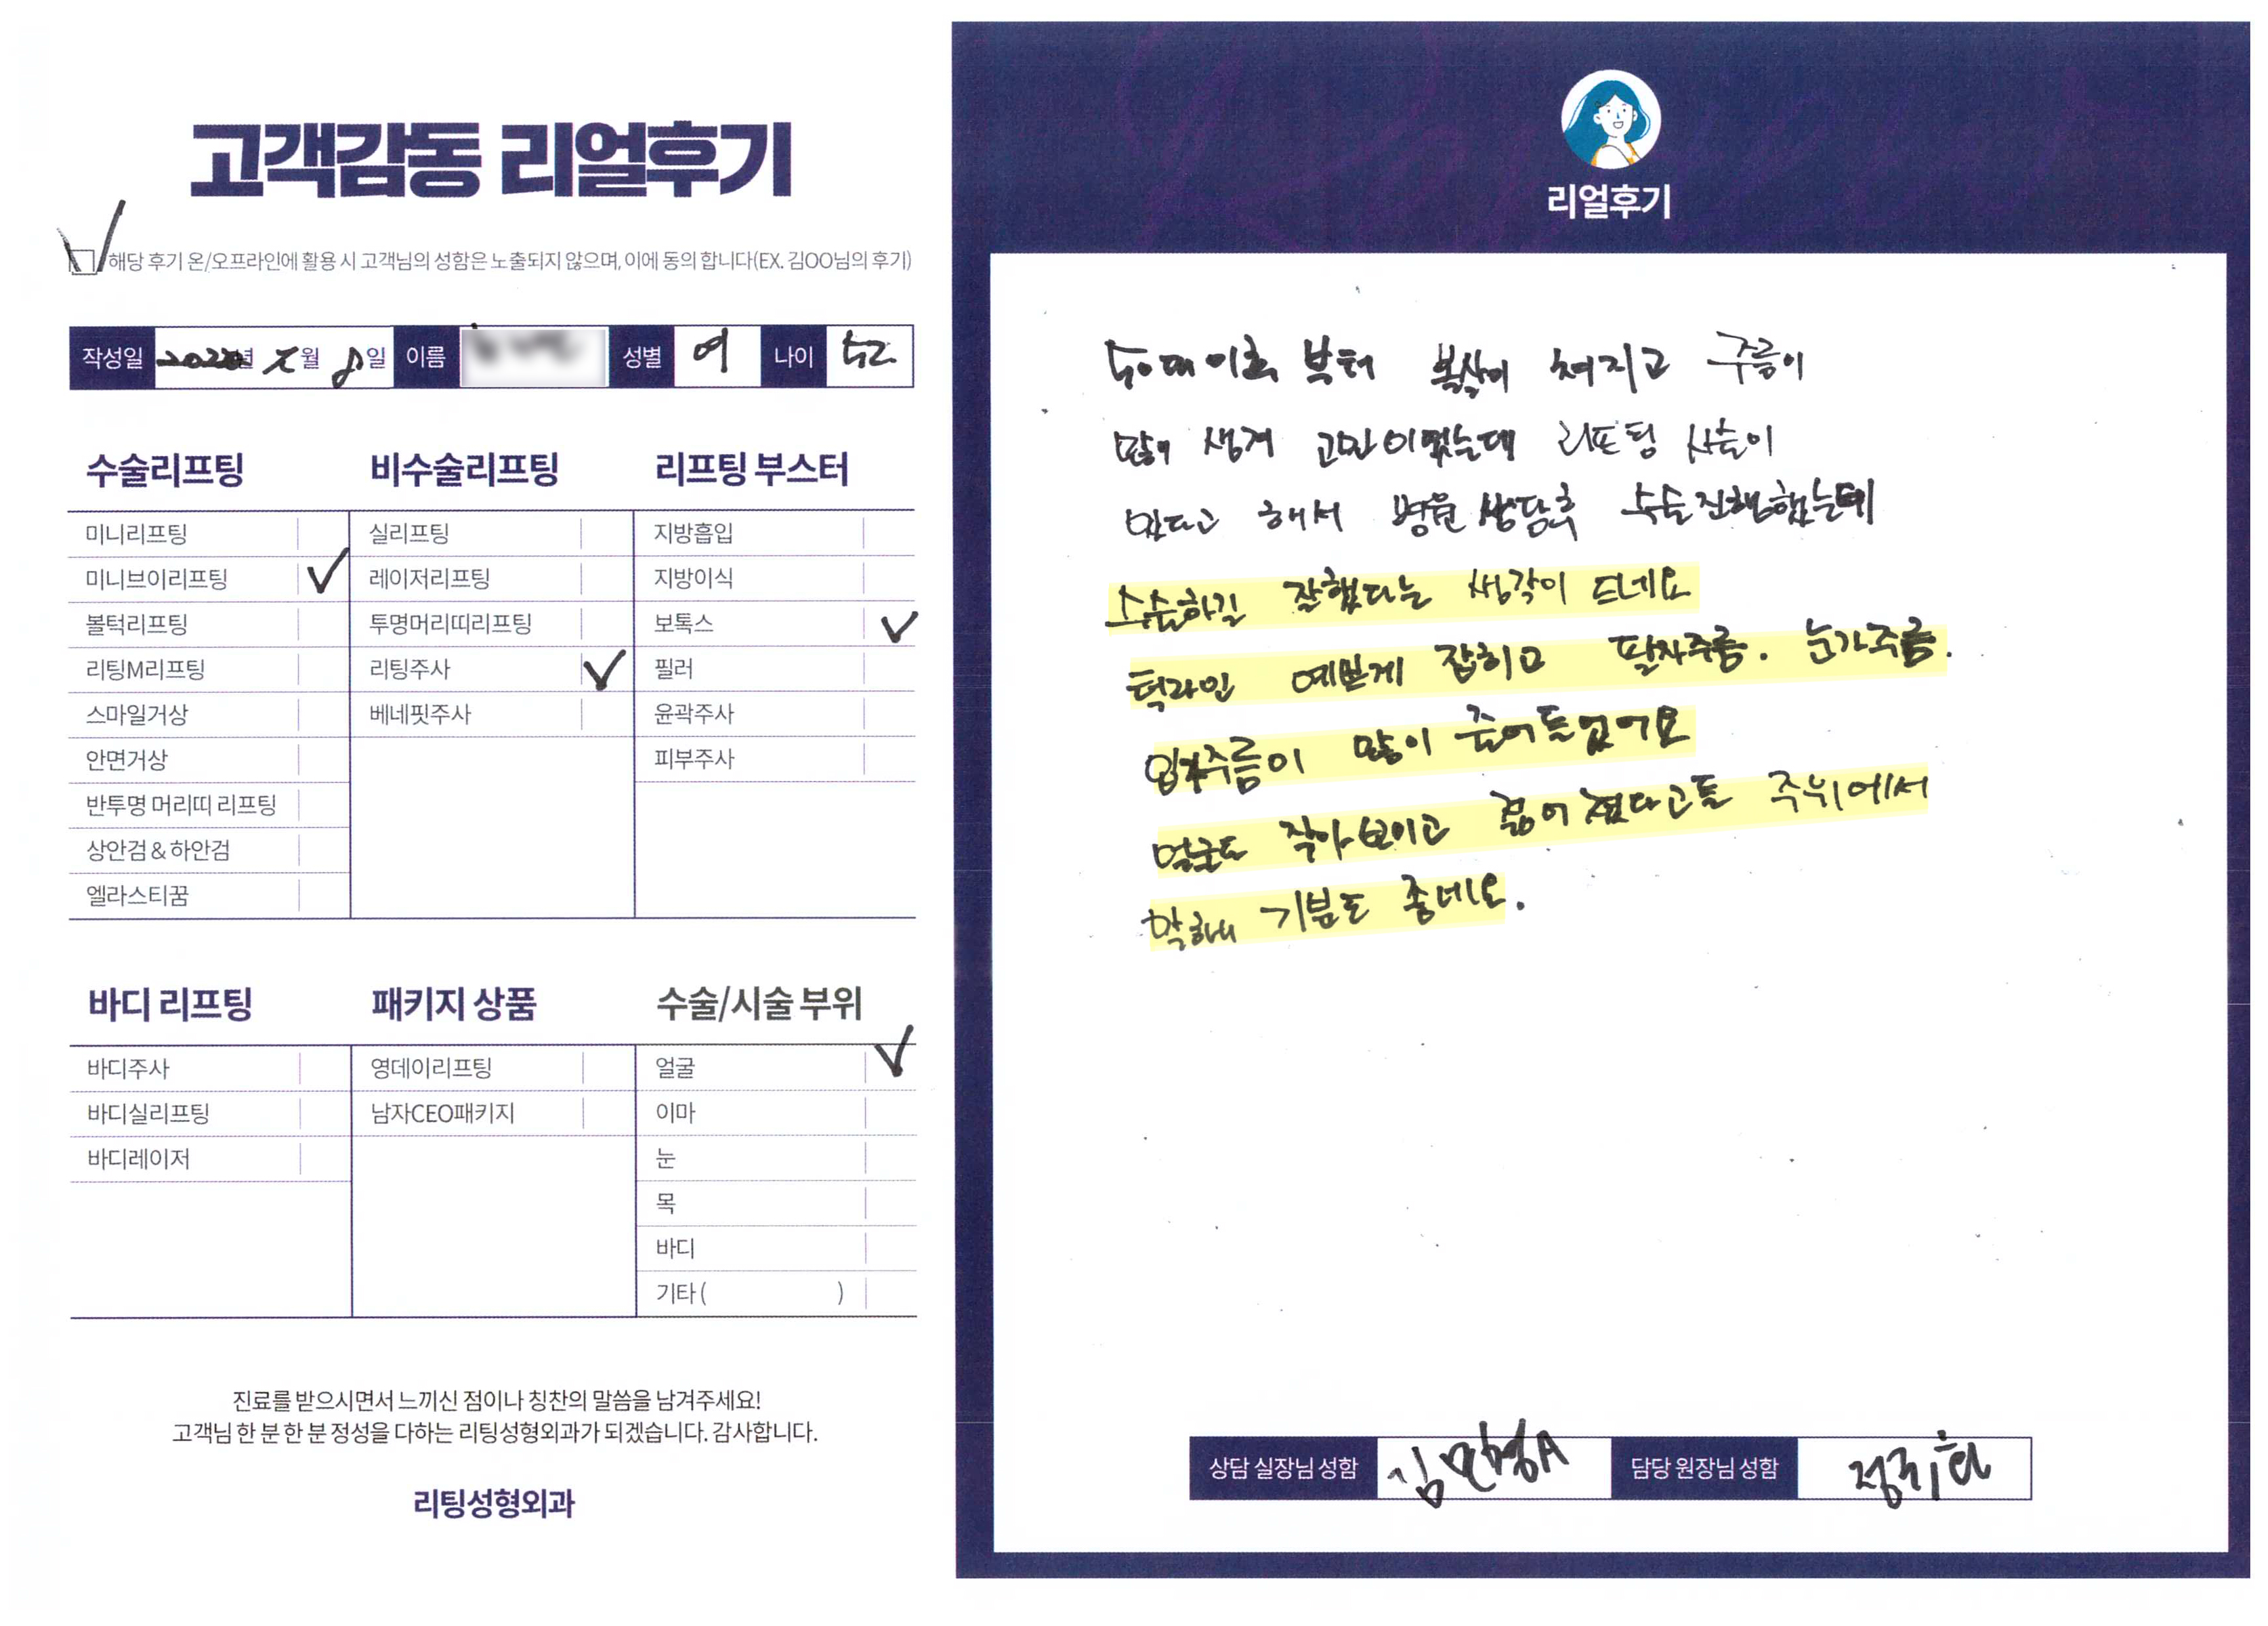 고객감동 리얼후기
해당 후기 온/오프라인에 활용 시 고객님의 성함은 노출되지 않으며, 이에 동의 합니다(EX. 김OO님의 후기)
작성일 2022년 월 8일 이름 성별 여 나이 52
수술리프팅
미니리프팅
미니브이리프팅
볼턱리프팅
리팅M리프팅
스마일거상
안면거상
반투명 머리띠 리프팅
상안검 & 하안검
엘라스티꿈
비수술리프팅
실리프팅
레이저리프팅
투명머리띠리프팅
리팅주사
베네핏주사
리프팅 부스터
지방흡입
지방이식
보톡스
필러
윤곽주사
피부주사
바디 리프팅
바디주사
바디실리프팅
바디레이저
패키지 상품
영데이리프팅
남자CEO패키지
수술/시술 부위
얼굴
이마
눈
목
바디
기타 ( )
진료를 받으시면서 느끼신 점이나 칭찬의 말씀을 남겨주세요!
고객님 한 분 한 분 정성을 다하는 리팅성형외과가 되겠습니다. 감사합니다.
리팅성형외과
리얼후기
50대 이후 부터 볼살이 쳐지고 주름이
많이 생겨 고민이였는데 리프팅 시술이
있다고 해서 병원 상담후 수술진행했는데
수술하길 잘했다는 생각이 드네요
턱라인 예쁘게 잡히고 팔자주름. 눈가주름.
입가주름이 많이 줄어들었어요
얼굴도 작아보이고 젊어졌다고들 주위에서
말해 기분도 좋네요.
상담 실장님 성함 김민영A 담당 원장님 성함